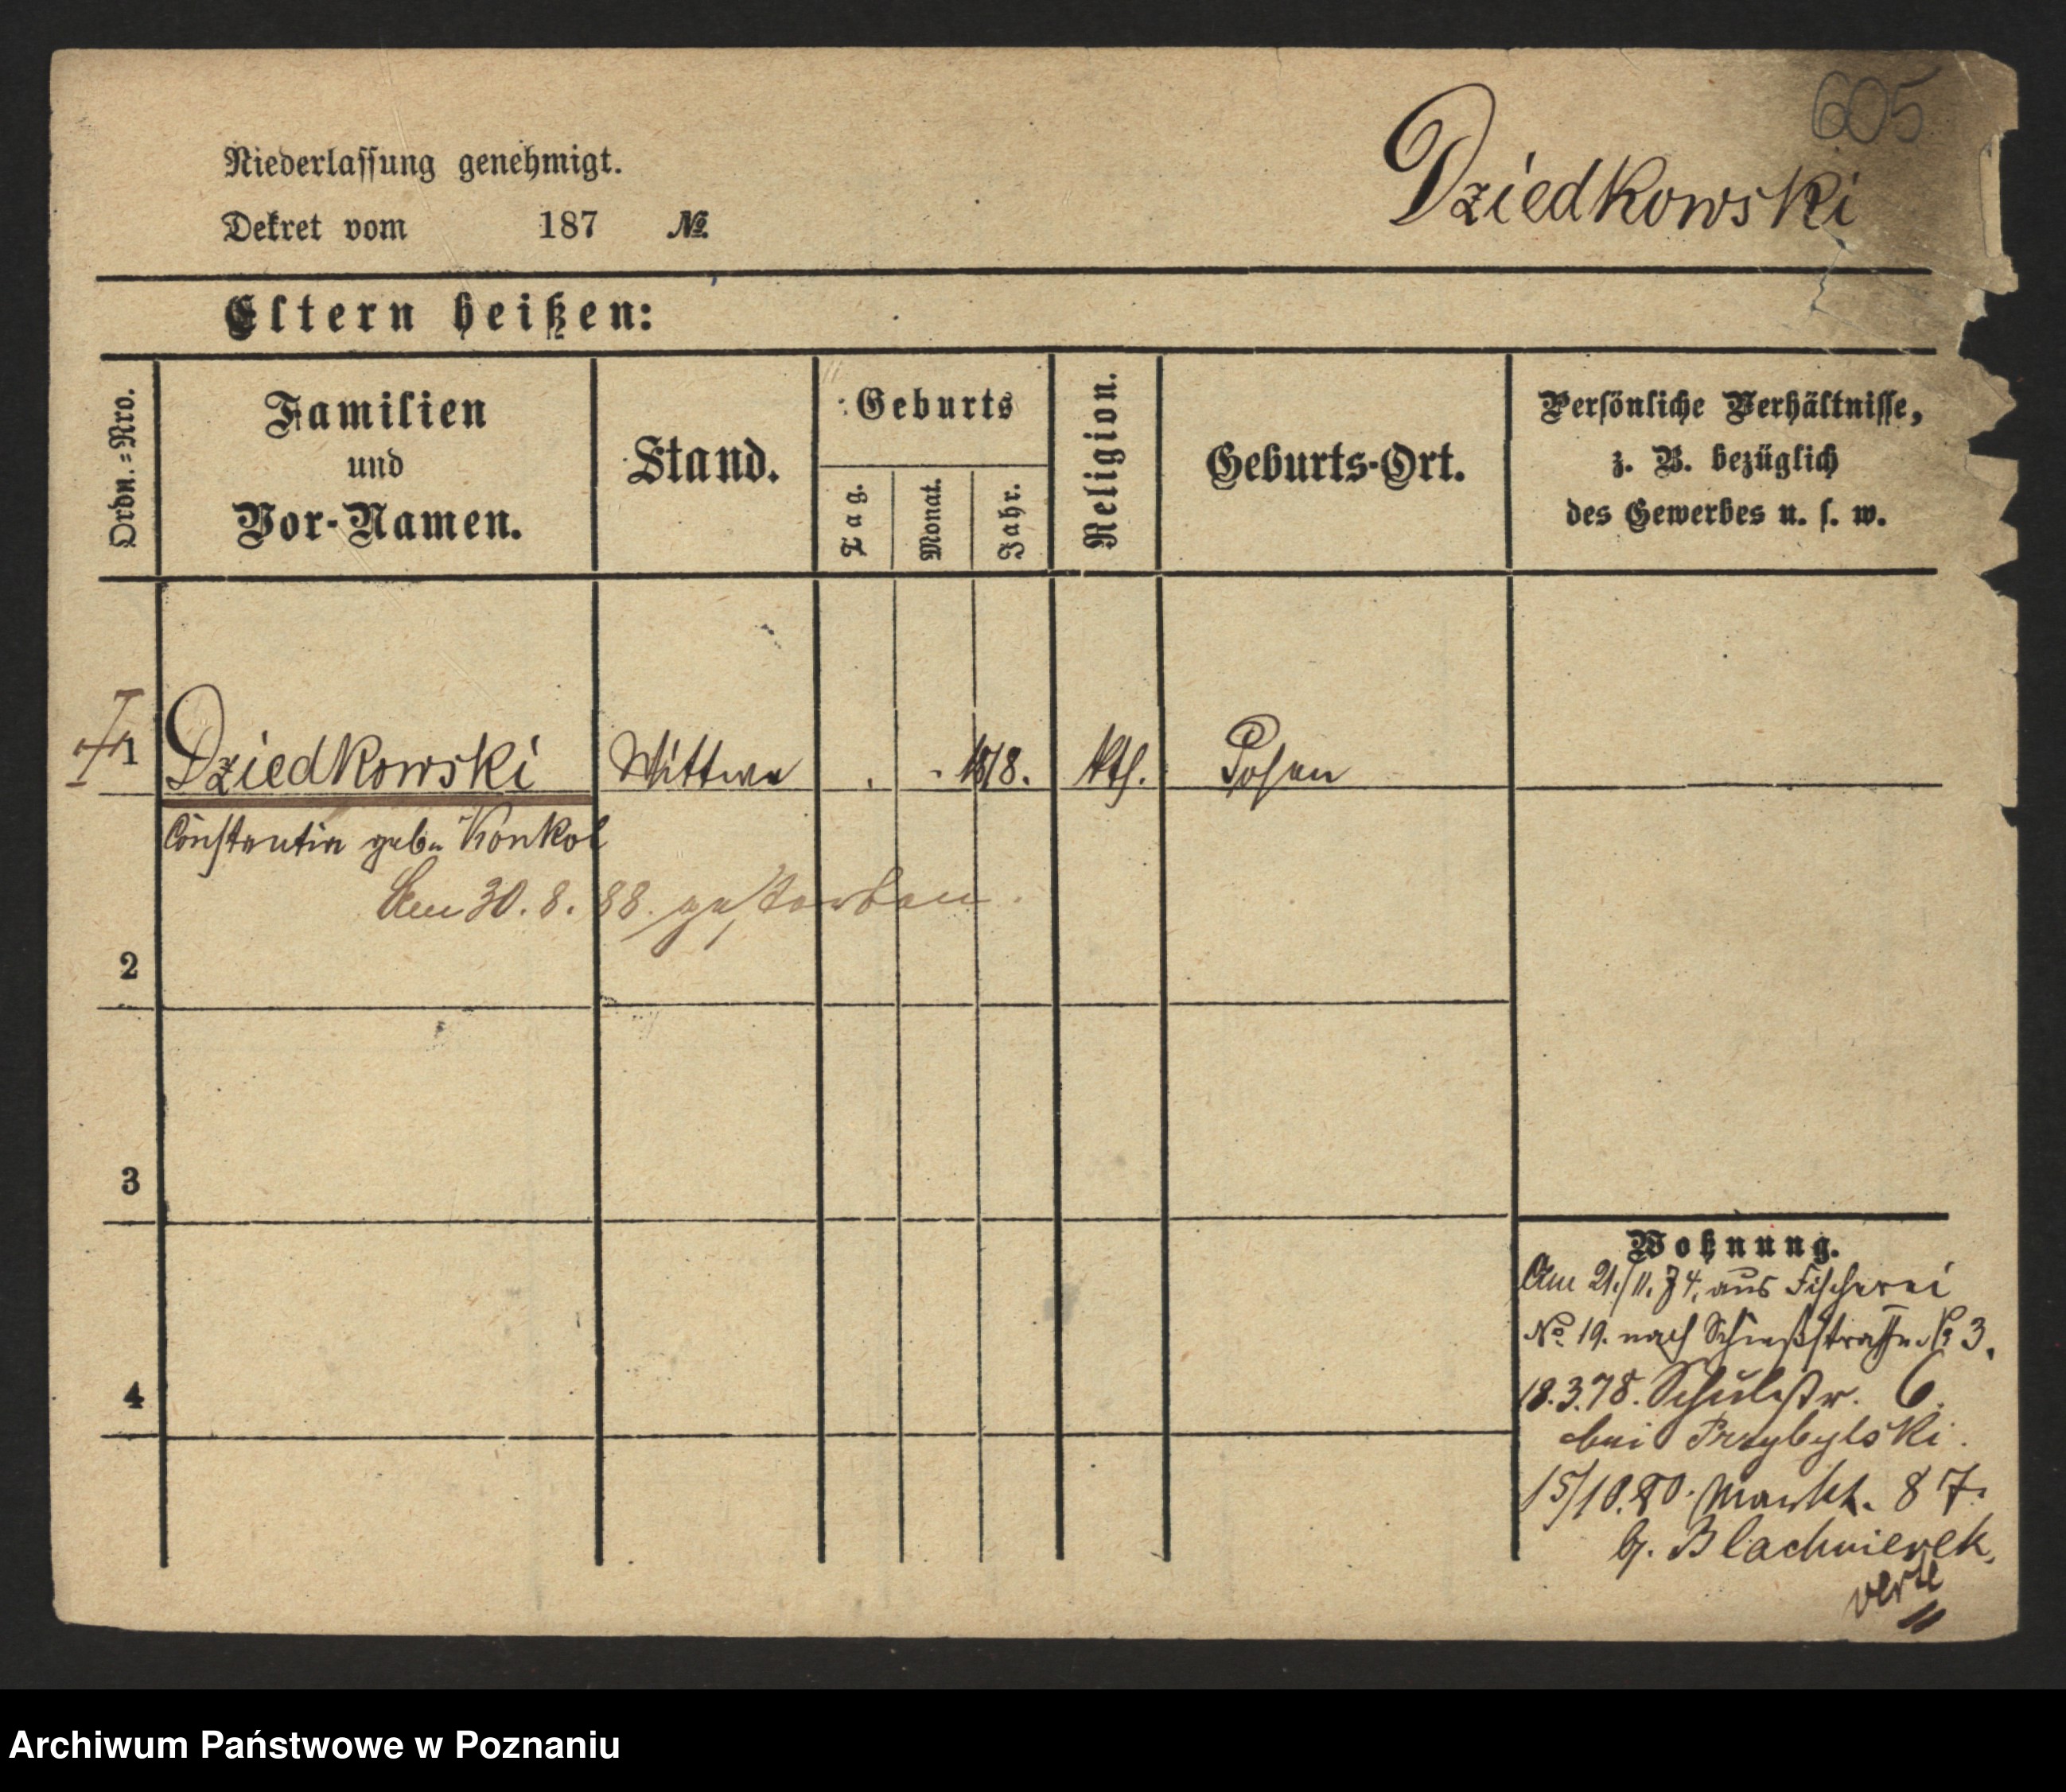 605
Dziedkowski
Niederlassung genehmigt.
Dekret vom 187 №
Eltern heißen:
Ordn.=Nro.
Familien
und
Vor-Namen.
Stand.
Geburts
Tag.
Monat.
Jahr.
Religion.
Geburts-Ort.
Persönliche Verhältnisse,
z. B. bezüglich
des Gewerbes u. s. w.
1 Dziedkowski Wittwe 1818. kth. Posen
Constantia geb. Konkol
Am 30. 8. 88. gestorben.
2
3
4
Wohnung.
Am 21./11. 74. aus Fischerei
No 19. nach Schießstraße № 3.
18.3.78. Schulstr. 6.
bei Przybylski.
15/10.80. Markt. 87.
b. Blachnierek,
verte
Archiwum Państwowe w Poznaniu